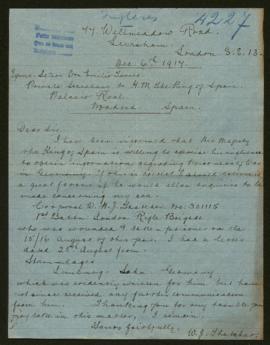 Ingleses
4227
47 Wellmeadow Road.
Lewisham.
London S.E. 13.
Dec 6th 1917.
Señor Don Emilio
Private Secretary to H.M. The King of Spain.
Palacio Real.
Madrid Spain.
Dear Sir.
I have been informed that His Majesty
the King of Spain is willing to
to obtain information regarding Prisoners of War
in Germany. If this is so
a great favour if he would allow enquiries to be
made concerning my son.
Corporal D. No. 301115
1st London Rifle Brigade
who was wounded & taken prisoner on the
15/16 August of this year. I had a letter
dated 25th August from
Limburg Lahn Germany.
which was evidently written for him but have
not since received any further communication
from him. Thanking you for any trouble you
may take in this matter, I remain
Yours faithfully
W. J. Thatcher.